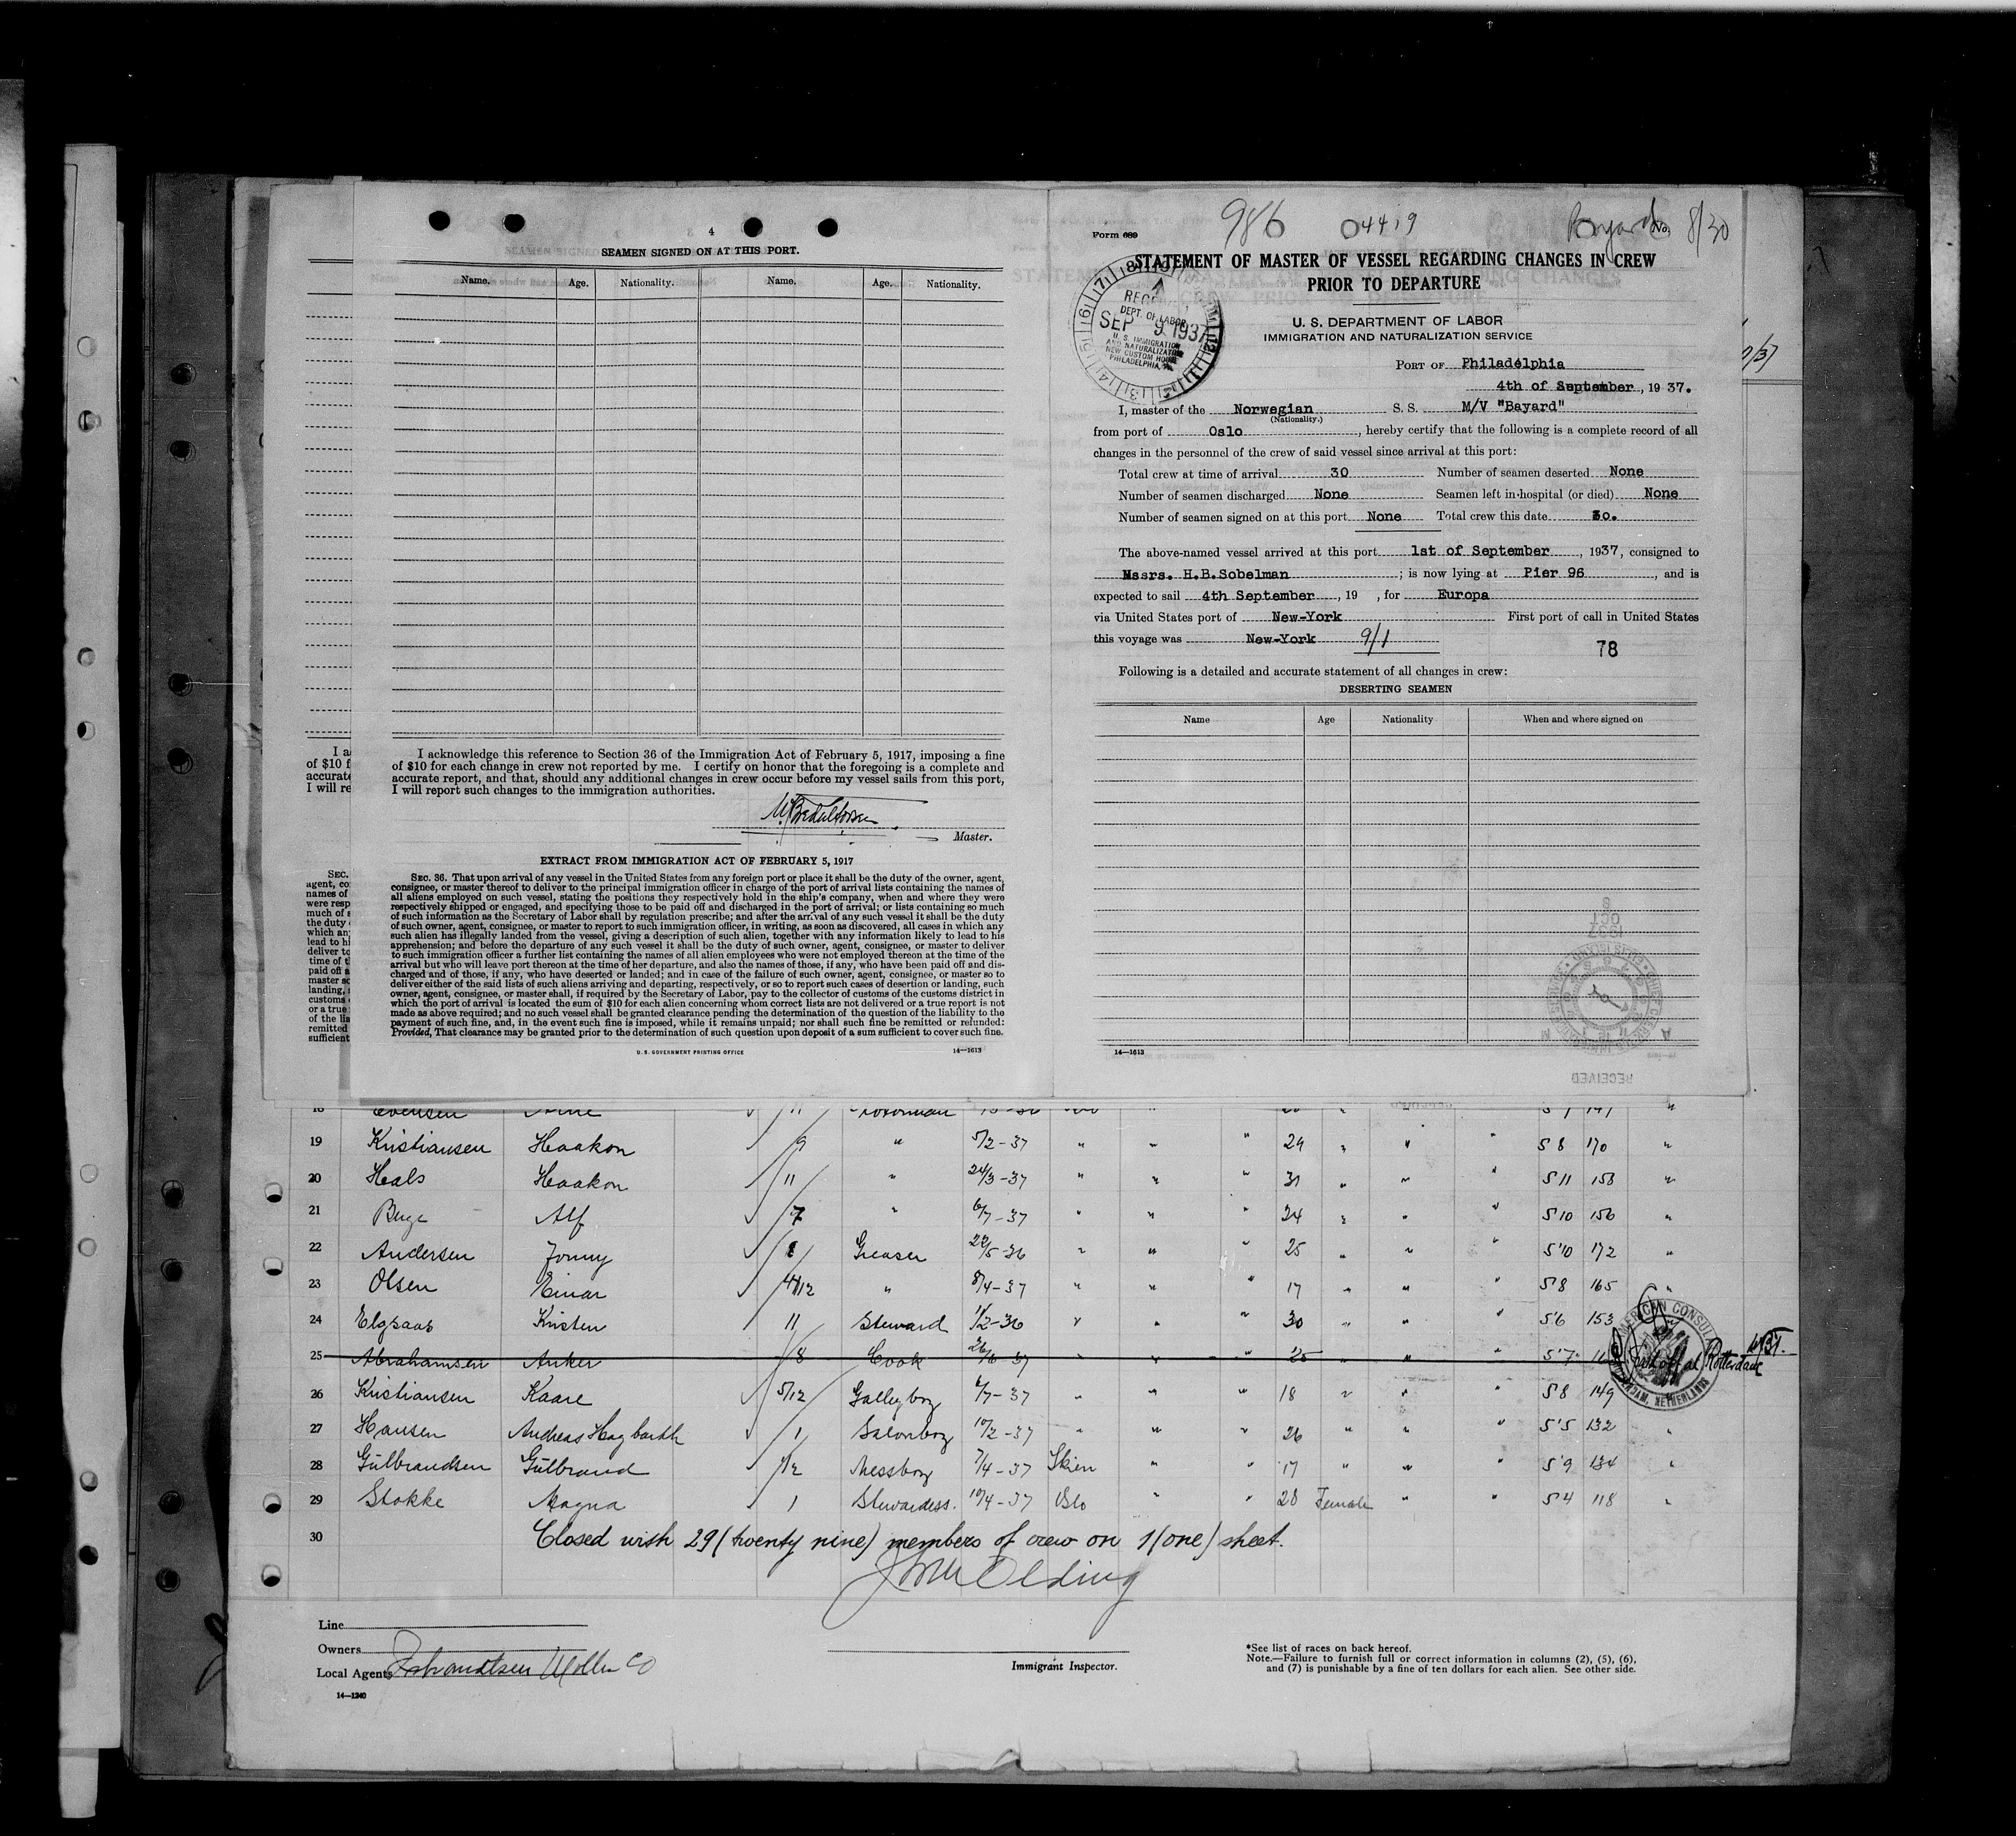 4
SEAMEN SIGNED ON AT THIS PORT.
Name. Age. Nationality. Name. Age. Nationality.
I acknowledge this reference to Section 36 of the Immigration Act of February 5, 1917, imposing a fine
of $10 for each change in crew not reported by me. I certify on honor that the foregoing is a complete and
accurate report, and that, should any additional changes in crew occur before my vessel sails from this port,
I will report such changes to the immigration authorities.
Master.
EXTRACT FROM IMMIGRATION ACT OF FEBRUARY 5, 1917
SEC. 36. That upon arrival of any vessel in the United States from any foreign port or place it shall be the duty of the owner, agent,
consignee, or master thereof to deliver to the principal immigration officer in charge of the port of arrival lists containing the names of
all aliens employed on such vessel, stating the positions they respectively hold in the ship's company, when and where they were
respectively shipped or engaged, and specifying those to be paid off and discharged in the port of arrival; or lists containing so much
of such information as the Secretary of Labor shall by regulation prescribe; and after the arrival of any such vessel it shall be the duty
of such owner, agent, consignee, or master to report to such immigration officer, in writing, as soon as discovered, all cases in which any
such alien has illegally landed from the vessel, giving a description of such alien, together with any information likely to lead to his
apprehension; and before the departure of any such vessel it shall be the duty of such owner, agent, consignee, or master to deliver
to such immigration officer a further list containing the names of all alien employees who were not employed thereon at the time of the
arrival but who will leave port thereon at the time of her departure, and also the names of those, if any, who have been paid off and dis-
charged and of those, if any, who have deserted or landed; and in case of the failure of such owner, agent, consignee, or master so to
deliver either of the said lists of such aliens arriving and departing, respectively, or so to report such cases of desertion or landing, such
owner, agent, consignee, or master shall, if required by the Secretary of Labor, pay to the collector of customs of the customs district in
which the port of arrival is located the sum of $10 for each alien concerning whom correct lists are not delivered or a true report is not
made as above required; and no such vessel shall be granted clearance pending the determination of the question of the liability to the
payment of such fine, and, in the event such fine is imposed, while it remains unpaid; nor shall such fine be remitted or refunded:
Provided, That clearance may be granted prior to the determination of such question upon deposit of a sum sufficient to cover such fine.
U. S. GOVERNMENT PRINTING OFFICE 14—1613
Form 689 986 04419 Bayard No. 8/30
STATEMENT OF MASTER OF VESSEL REGARDING CHANGES IN CREW
PRIOR TO DEPARTURE
U. S. DEPARTMENT OF LABOR
IMMIGRATION AND NATURALIZATION SERVICE
DEPT. OF LABOR
SEP 9 1937
U. S. IMMIGRATION
AND NATURALIZATION
NEW CUSTOM HOUSE
PHILADELPHIA, PA.
PORT OF Philadelphia
4th of September, 1937.
I, master of the Norwegian S. S. M/V "Bayard"
(Nationality.)
from port of Oslo, hereby certify that the following is a complete record of all
changes in the personnel of the crew of said vessel since arrival at this port:
Total crew at time of arrival 30 Number of seamen deserted None
Number of seamen discharged None Seamen left in hospital (or died) None
Number of seamen signed on at this port None Total crew this date 30.
The above-named vessel arrived at this port 1st of September, 1937, consigned to
Mssrs. H.B.Sobelman; is now lying at Pier 96, and is
expected to sail 4th September, 19 , for Europa
via United States port of New-York First port of call in United States
this voyage was New-York 9/1
78
Following is a detailed and accurate statement of all changes in crew:
DESERTING SEAMEN
Name Age Nationality When and where signed on
14—1613
RECEIVED
18 Evensen Arne 11
19 Kristiansen Haakon 9 " 5/2-37 " " " 29 " " " 5 8 170 "
20 Hals Haakon 11 " 24/3-37 " " " 31 " " " 5 11 158 "
21 Alf 7 " 6/7-37 " " " 24 " " " 5 10 156 "
22 Andersen Jonny 1 Greaser 22/5-36 " " " 25 " " " 5'10 172 "
23 Olsen Einar " 8/4-37 " " " 17 " " " 5 8 165 "
24 Kristen 11 Steward 11/2-36 " " " 30 " " " 5'6 153
25 Abrahamsen Anker 8 Cook 37 " " " 25 " " " 5'7 at Rotterdam
AMERICAN CONSUL
ROTTERDAM, NETHERLANDS
26 Kristiansen Kaare 5/12 Galleyboy 6/7-37 " " " 18 " " " 5 8 149
27 Hansen Andreas Hagbarth 1 Salonboy 10/2-37 " " " 26 " " " 5'5 132 "
28 Gülbrandsen Gülbrand 1/2 Messboy 7/4-37 Skien " " 17 " " " 5'9 134 "
29 Stokke Magna 1 Stewardess. 10/4-37 Oslo " " 28 Female " " 5 4 118 "
30 Closed with 29 (twenty nine) members of crew on 1 (one) sheet.
Line
Owners
Local Agents
Immigrant Inspector.
*See list of races on back hereof.
Note.—Failure to furnish full or correct information in columns (2), (5), (6),
and (7) is punishable by a fine of ten dollars for each alien. See other side.
14—1240